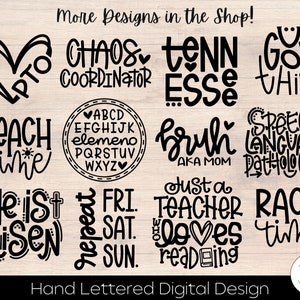 More Designs in the Shop!
PTO
CHAOS
COORDINATOR
TENN
ESSEE
GO
thi
EACH
time
ABCD
EFGHIJK
elemeno
PQRSTUV
WXYZ
bruh
AKA MOM
SPEEC
LANGUAG
Pathologis
He is
Risen
repeat
FRI.
SAT.
SUN.
Just a
TEACHER
WHO loves
reading
RAC
time
Hand Lettered Digital Design